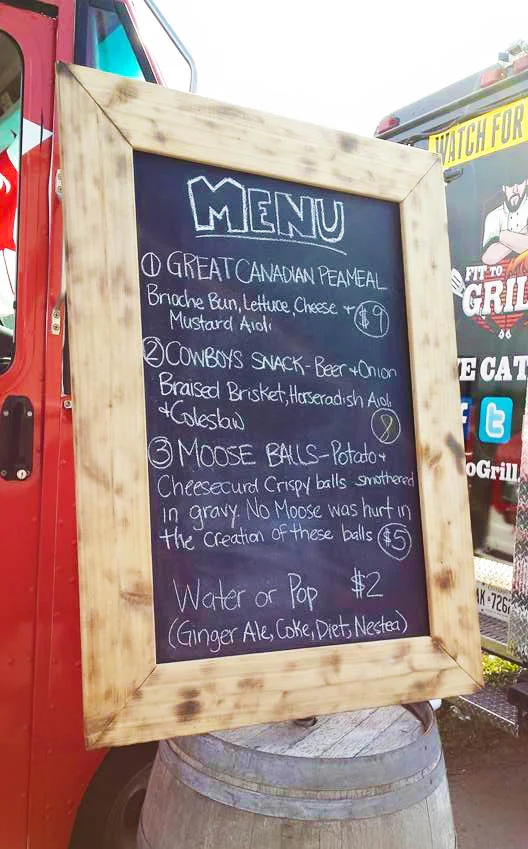 MENU
① GREAT CANADIAN PEAMEAL
Brioche Bun, Lettuce, Cheese +
Mustard Aioli $9
② COWBOYS SNACK - Beer + Onion
Braised Brisket, Horseradish Aioli
+ Coleslaw
8
③ MOOSE BALLS - Potato +
Cheesecurd Crispy balls smothered
in gravy. No Moose was hurt in
the creation of these balls $5
Water or Pop $2
(Ginger Ale, Coke, Diet, Nestea)
WATCH FOR
FIT TO
GRIL
E CAT
oGrill